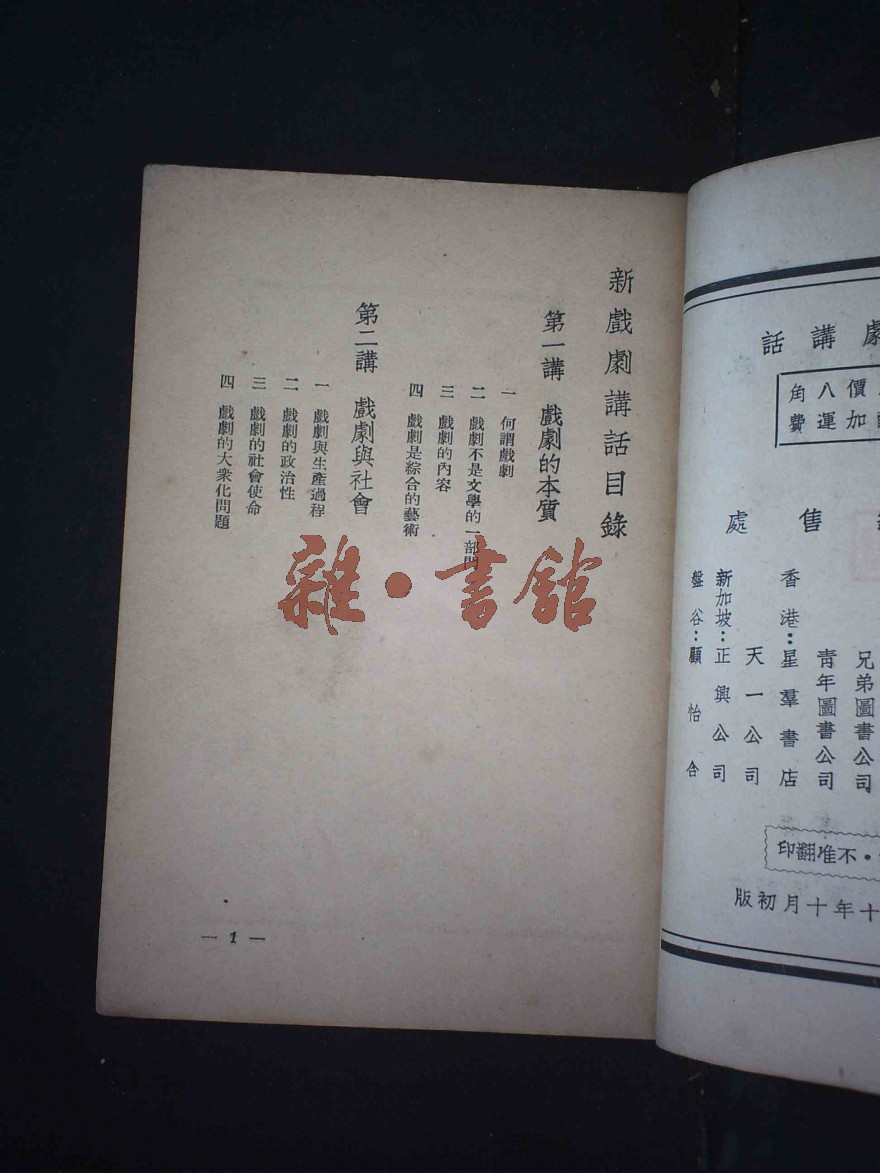 新戲劇講話目錄
第一講 戲劇的本質
一 何謂戲劇
二 戲劇不是文學的一部門
三 戲劇的內容
四 戲劇是綜合的藝術
第二講 戲劇與社會
一 戲劇與生產過程
二 戲劇的政治性
三 戲劇的社會使命
四 戲劇的大衆化問題
— 1 —
雜·書館
劇講話
價八角
加運費
售處
兄弟圖書公司
青年圖書公司
香港:星羣書店
天一公司
新加坡:正興公司
盤谷:顧怡合
·不准翻印
十年十月初版